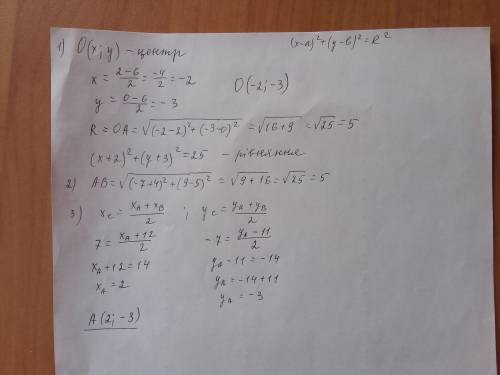 1) O(x; y) – центр (x-a)²+(y-b)²=R²
x = (2-6)/2 = -4/2 = -2 O(-2; -3)
y = (0-6)/2 = -3
R = OA = √((-2-2)²+(-3-0)²) = √(16+9) = √25 = 5
(x+2)²+(y+3)²=25 – рівняння
2) AB = √((-7+4)²+(9-5)²) = √(9+16) = √25 = 5
3) x_c = (x_A + x_B)/2 ; y_c = (y_A + y_B)/2
7 = (x_A + 12)/2 -7 = (y_A - 11)/2
x_A + 12 = 14 y_A - 11 = -14
x_A = 2 y_A = -14 + 11
y_A = -3
A(2; -3)